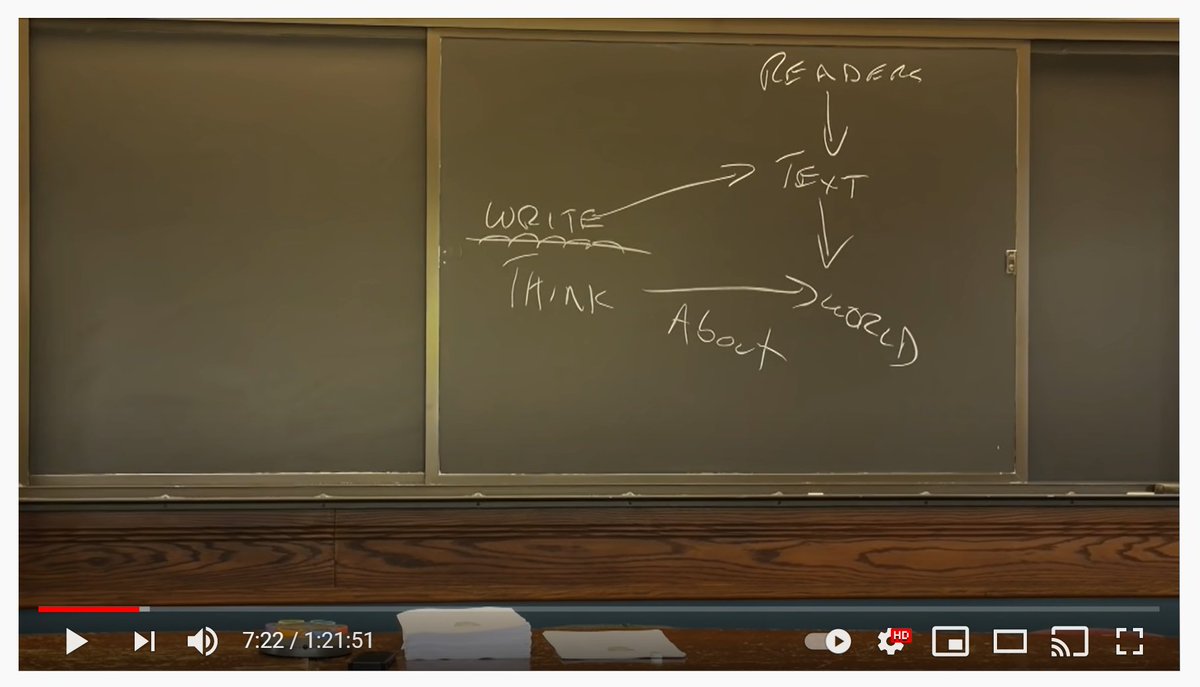 READERS
TEXT
WRITE
THINK
About
WORLD
7:22 / 1:21:51
HD